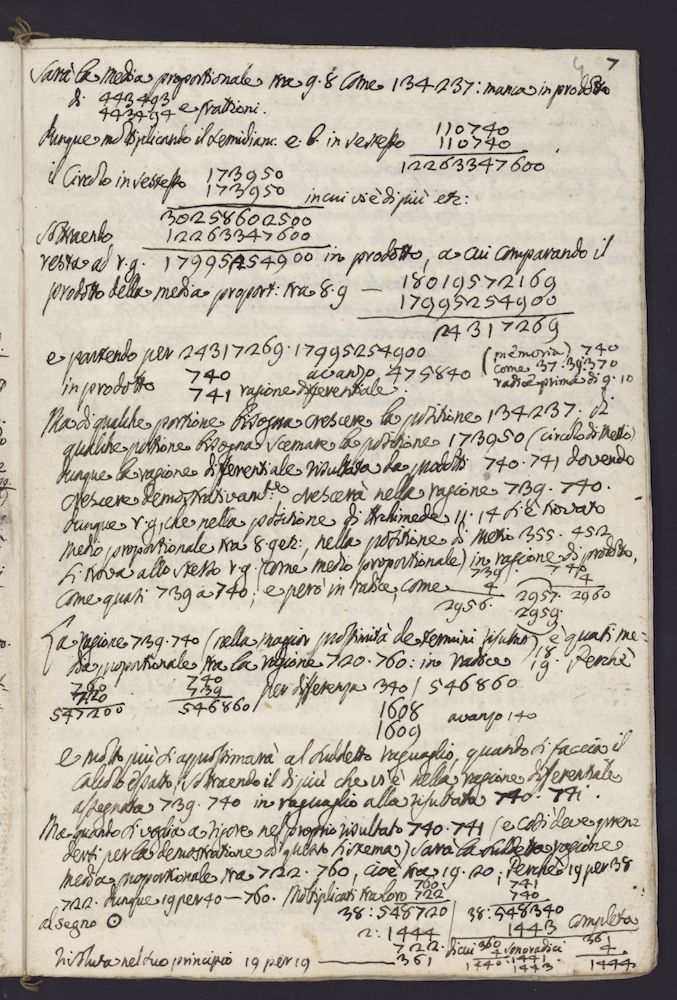 7
Sarà la media proporzionale tra 9. 8 come 134237: manca in prodotto
di 443493
443494 e frattioni.
dunque moltiplicando il semidiam: e. b. in se stesso 110740
110740
12263347600
il Circolo in se stesso 173950
173950 in cui vi è di più etc:
30258602500
sottraendo 12263347600
resta ad r. g. 17995254900 in prodotto, a cui comparando il
prodotto della media proport: tra 8. 9 — 18019572169
17995254900
24317269
e partendo per 24317269. 17995254900 (memoria) 740
in prodotto 740 avanzo 475840 come 37. 39. 370
741 ragione differentiale. radice prima di 9. 10
Ma di qualche portione bisogna crescere la positione 134237. di
qualche portione bisogna scemare la positione 173950 (circolo di Metio)
dunque la ragione differentiale risultata da prodotti 740. 741 dovendo
crescere demostrativam.te crescerà nella ragione 739. 740.
dunque r. g, che nella positione di Archimede 11. 14 si è trovato
medio proportionale tra 8. 9 etc:, nella positione di Metio 355. 452
si trova allo stesso r. g. (come medio proportionale) in ragione di prodotto,
come quasi 739 a 740; e però in radice, come 739. 740
4 4
2956. 2957. 2960
2959.
La ragione 739. 740 (nella maggior prossimità de termini) è quasi me:
dia proportionale tra la ragione 720. 760: in radice 18 19. Perchè
760 740 per differenza 340 / 546860
720 739
547200 546860 1608
1609 avanzo 140
e molto più si approssimarà al suddetto raguaglio, quando si faccia il
calcolo esatto, sottraendo il di più che vi è nella ragione differentiale
assegnata 739. 740 in raguaglio alla risultata 740. 741.
Ma quando si voglia a rigore nel proprio risultato 740. 741 (e così deve pren:
dersi per la demostratione di questo sistema) sarà la suddetta ragione
media proportionale tra 722. 760, cioè tra 19. 20. Perchè 19 per 38
722. dunque 19 per 40 — 760. Moltiplicati tra loro 760 741
722 740
al segno ⊙ 38: 548720 38: 548340 completa
2: 1444 1443 361
722. di cui 360 sono radici 4
4 1441
1440. 1443 1444
risoluta nel suo principio 19 per 19 ——— 361